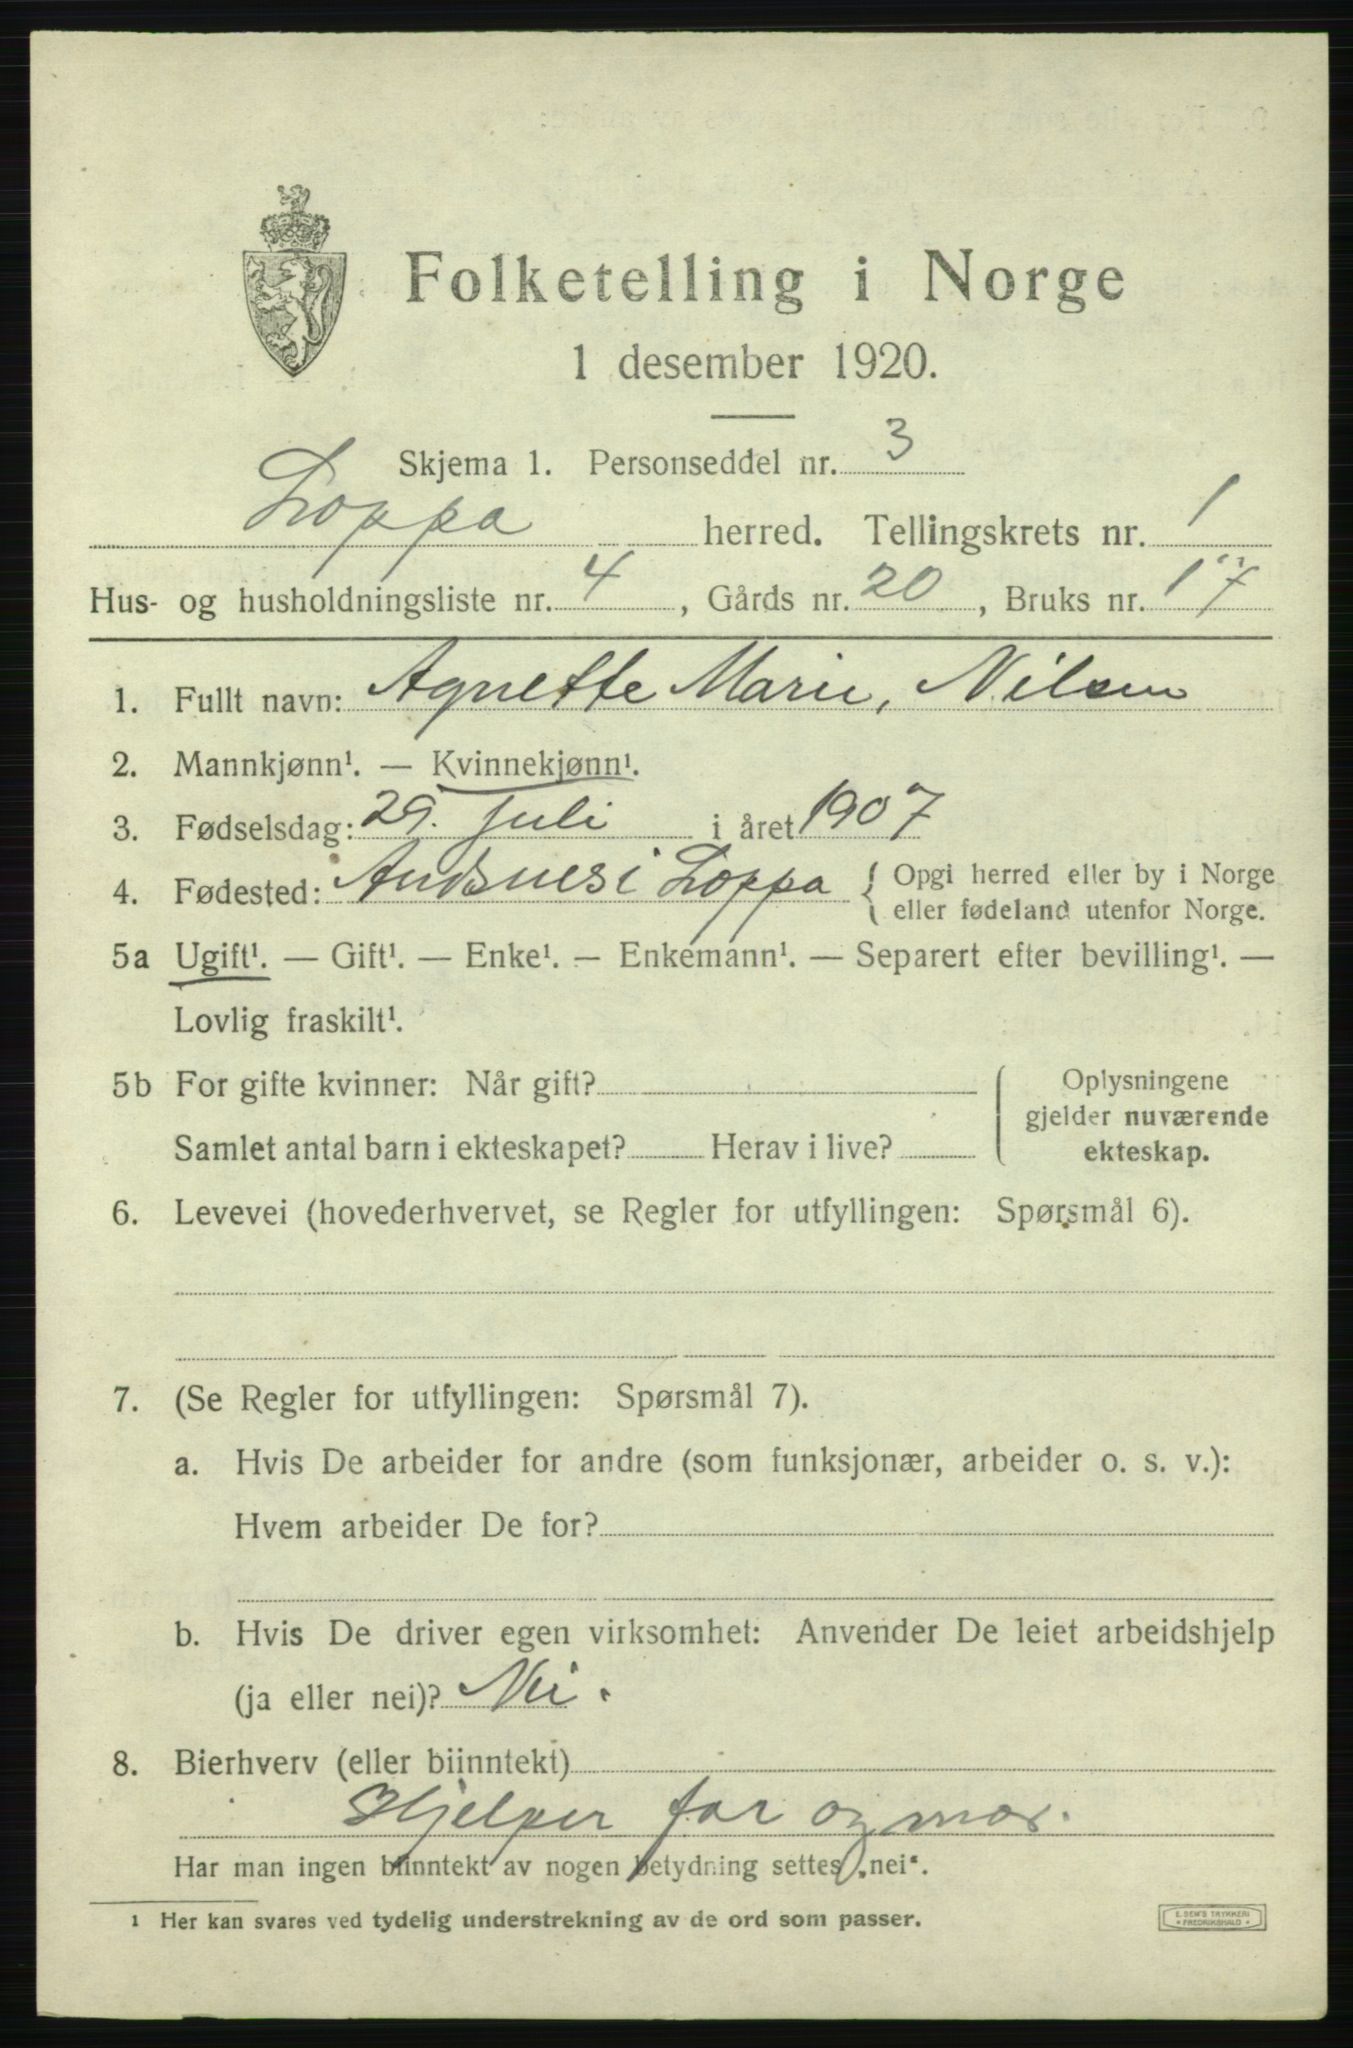 Folketelling i Norge
1 desember 1920.
Skjema 1. Personseddel nr. 3
Loppa herred. Tellingskrets nr. 1
Hus- og husholdningsliste nr. 4, Gårds nr. 20, Bruks nr. 17
1. Fullt navn: Agnette Marie, Nilsen
2. Mannkjønn¹. — Kvinnekjønn¹.
3. Fødselsdag: 29. juli i året 1907
4. Fødested: Andsnes i Loppa { Opgi herred eller by i Norge
eller fødeland utenfor Norge.
5a Ugift¹. — Gift¹. — Enke¹. — Enkemann¹. — Separert efter bevilling¹. —
Lovlig fraskilt¹.
5b For gifte kvinner: Når gift?
Samlet antal barn i ekteskapet? Herav i live?
Oplysningene
gjelder nuværende
ekteskap.
6. Levevei (hovederhvervet, se Regler for utfyllingen: Spørsmål 6).
7. (Se Regler for utfyllingen: Spørsmål 7).
a. Hvis De arbeider for andre (som funksjonær, arbeider o. s. v.):
Hvem arbeider De for?
b. Hvis De driver egen virksomhet: Anvender De leiet arbeidshjelp
(ja eller nei)? Nei.
8. Bierhverv (eller biinntekt)
Hjelper far og mor.
Har man ingen biinntekt av nogen betydning settes „nei“.
1 Her kan svares ved tydelig understrekning av de ord som passer.
E. SEM'S TRYKKERI
* FREDRIKSHALD *